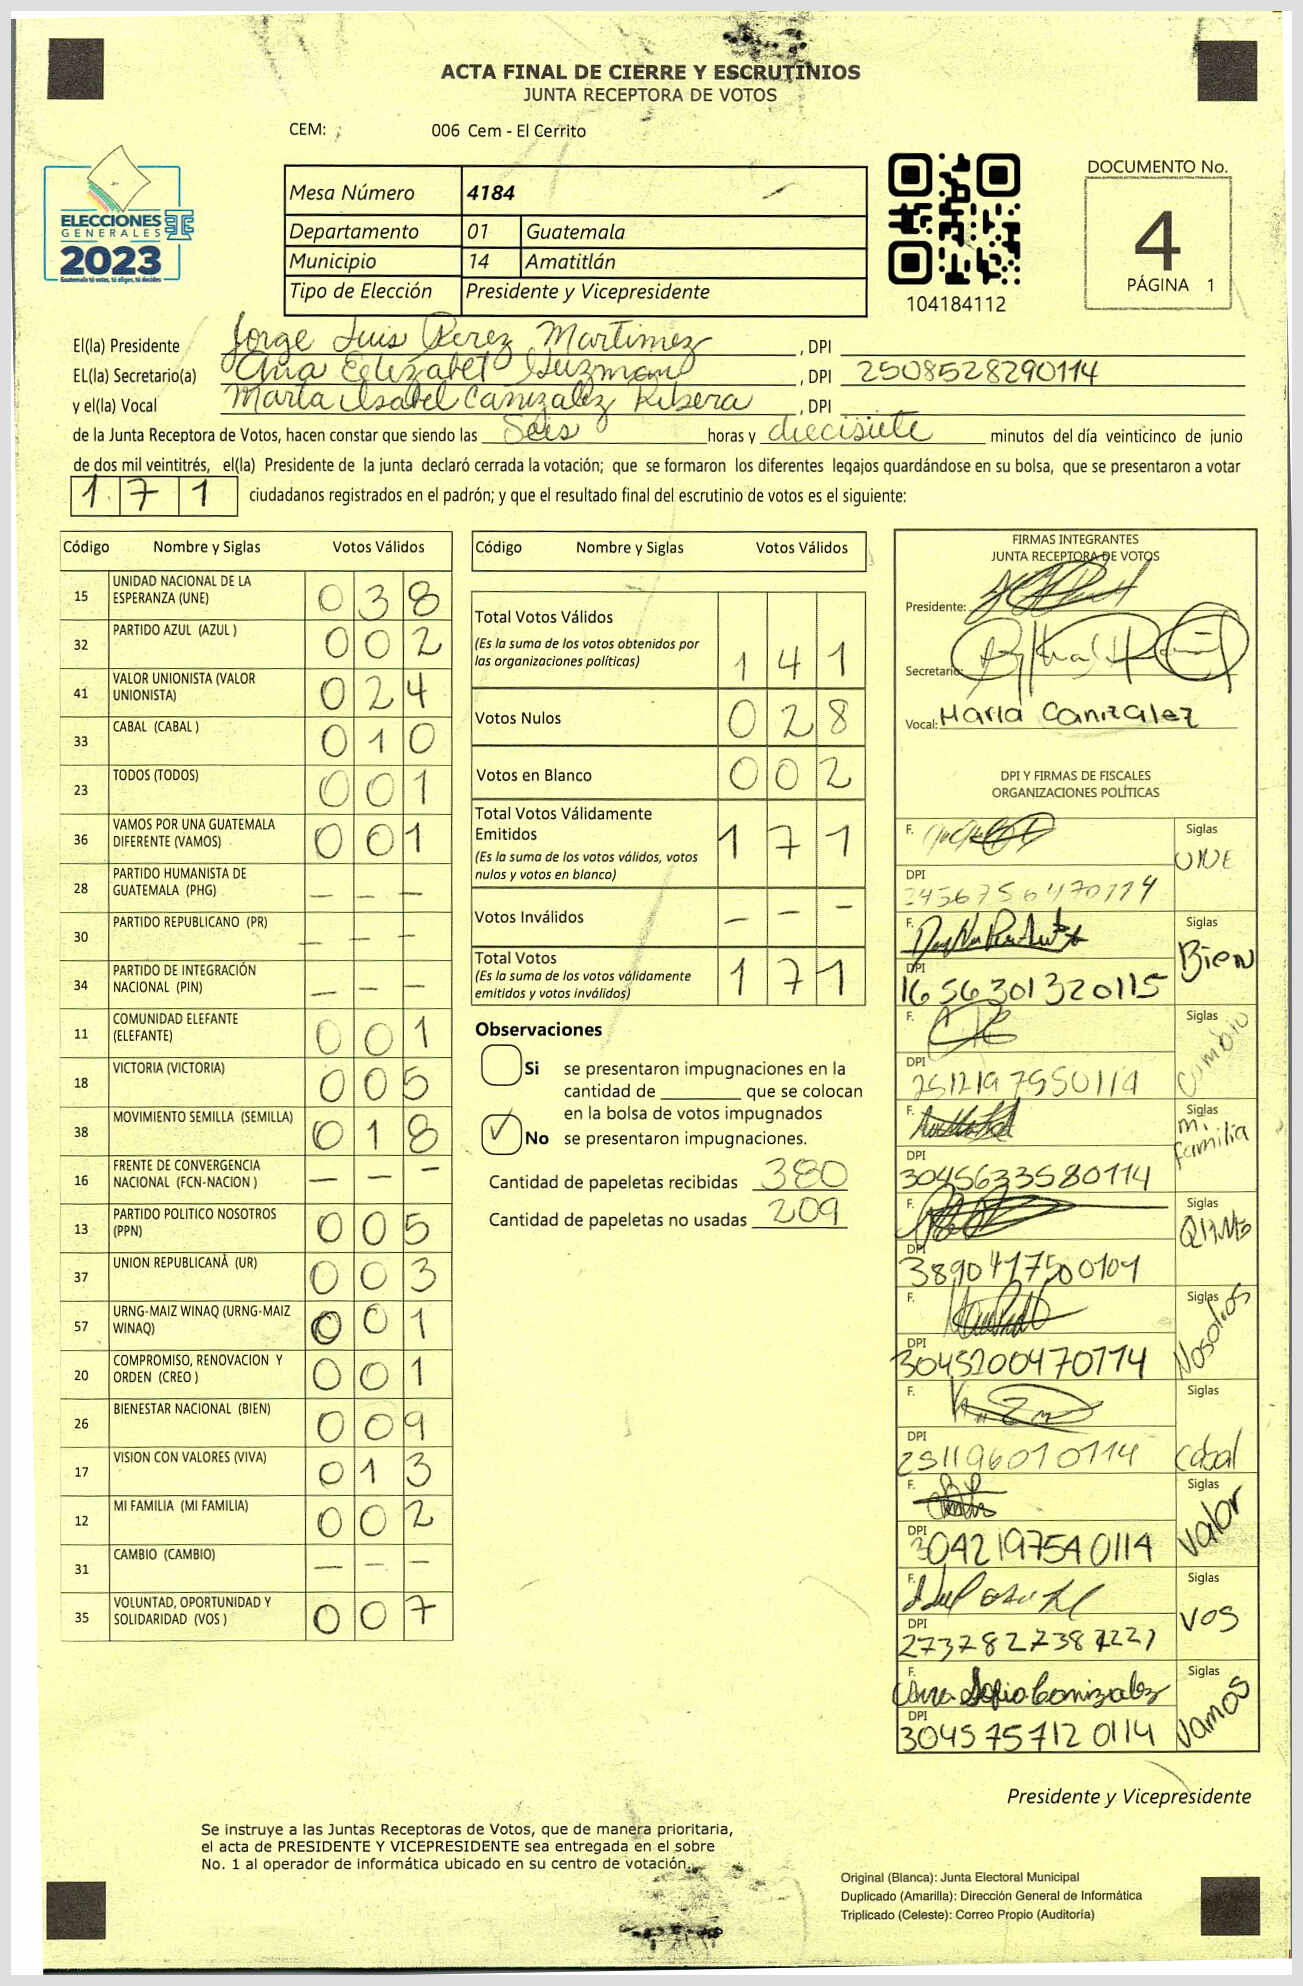 ACTA FINAL DE CIERRE Y ESCRUTINIOS
JUNTA RECEPTORA DE VOTOS
CEM: 006 Cem - El Cerrito
ELECCIONES
GENERALES
2023
Guatemala tú votas, tú eliges, tú decides
Mesa Número 4184
Departamento 01 Guatemala
Municipio 14 Amatitlán
Tipo de Elección Presidente y Vicepresidente
104184112
DOCUMENTO No.
4
PÁGINA 1
El(la) Presidente Jorge Luis Perez Martinez , DPI
EL(la) Secretario(a) Ana Elizabet Guzman , DPI 2508528290114
y el(la) Vocal Marta Isabel Canizalez Ribera , DPI
de la Junta Receptora de Votos, hacen constar que siendo las Seis horas y diecisiete minutos del día veinticinco de junio
de dos mil veintitrés, el(la) Presidente de la junta declaró cerrada la votación; que se formaron los diferentes legajos guardándose en su bolsa, que se presentaron a votar
171 ciudadanos registrados en el padrón; y que el resultado final del escrutinio de votos es el siguiente:
Código Nombre y Siglas Votos Válidos
15 UNIDAD NACIONAL DE LA ESPERANZA (UNE) 038
32 PARTIDO AZUL (AZUL ) 002
41 VALOR UNIONISTA (VALOR UNIONISTA) 024
33 CABAL (CABAL ) 010
23 TODOS (TODOS) 001
36 VAMOS POR UNA GUATEMALA DIFERENTE (VAMOS) 001
28 PARTIDO HUMANISTA DE GUATEMALA (PHG) — — —
30 PARTIDO REPUBLICANO (PR) — — —
34 PARTIDO DE INTEGRACIÓN NACIONAL (PIN) — — —
11 COMUNIDAD ELEFANTE (ELEFANTE) 001
18 VICTORIA (VICTORIA) 005
38 MOVIMIENTO SEMILLA (SEMILLA) 018
16 FRENTE DE CONVERGENCIA NACIONAL (FCN-NACION ) — — —
13 PARTIDO POLITICO NOSOTROS (PPN) 005
37 UNION REPUBLICANA (UR) 003
57 URNG-MAIZ WINAQ (URNG-MAIZ WINAQ) 001
20 COMPROMISO, RENOVACION Y ORDEN (CREO ) 001
26 BIENESTAR NACIONAL (BIEN) 009
17 VISION CON VALORES (VIVA) 013
12 MI FAMILIA (MI FAMILIA) 002
31 CAMBIO (CAMBIO) — — —
35 VOLUNTAD, OPORTUNIDAD Y SOLIDARIDAD (VOS ) 007
Código Nombre y Siglas Votos Válidos
Total Votos Válidos 141
(Es la suma de los votos obtenidos por
las organizaciones políticas)
Votos Nulos 028
Votos en Blanco 002
Total Votos Válidamente
Emitidos 171
(Es la suma de los votos válidos, votos
nulos y votos en blanco)
Votos Inválidos — — —
Total Votos 171
(Es la suma de los votos válidamente
emitidos y votos inválidos)
Observaciones
Si se presentaron impugnaciones en la
cantidad de ________ que se colocan
en la bolsa de votos impugnados
✓ No se presentaron impugnaciones.
Cantidad de papeletas recibidas 380
Cantidad de papeletas no usadas 209
FIRMAS INTEGRANTES
JUNTA RECEPTORA DE VOTOS
Presidente:
Secretario:
Vocal: Maria Canizalez
DPI Y FIRMAS DE FISCALES
ORGANIZACIONES POLÍTICAS
F. Siglas UNE
DPI
F. Siglas Bien
DPI 1656301320115
F. Siglas Cambio
DPI 2512197550114
F. Siglas mi familia
DPI 3045633580114
F. Siglas
DPI 3890417500101
F. Siglas Nosotros
DPI 3045200470114
F. Siglas Cabal
DPI 251196010114
F. Siglas Valor
DPI 3042197540114
F. Siglas VOS
DPI
F. Ana Sofia Canizalez Siglas Vamos
DPI 3045757120114
Presidente y Vicepresidente
Se instruye a las Juntas Receptoras de Votos, que de manera prioritaria,
el acta de PRESIDENTE Y VICEPRESIDENTE sea entregada en el sobre
No. 1 al operador de informática ubicado en su centro de votación.
Original (Blanca): Junta Electoral Municipal
Duplicado (Amarilla): Dirección General de Informática
Triplicado (Celeste): Correo Propio (Auditoría)